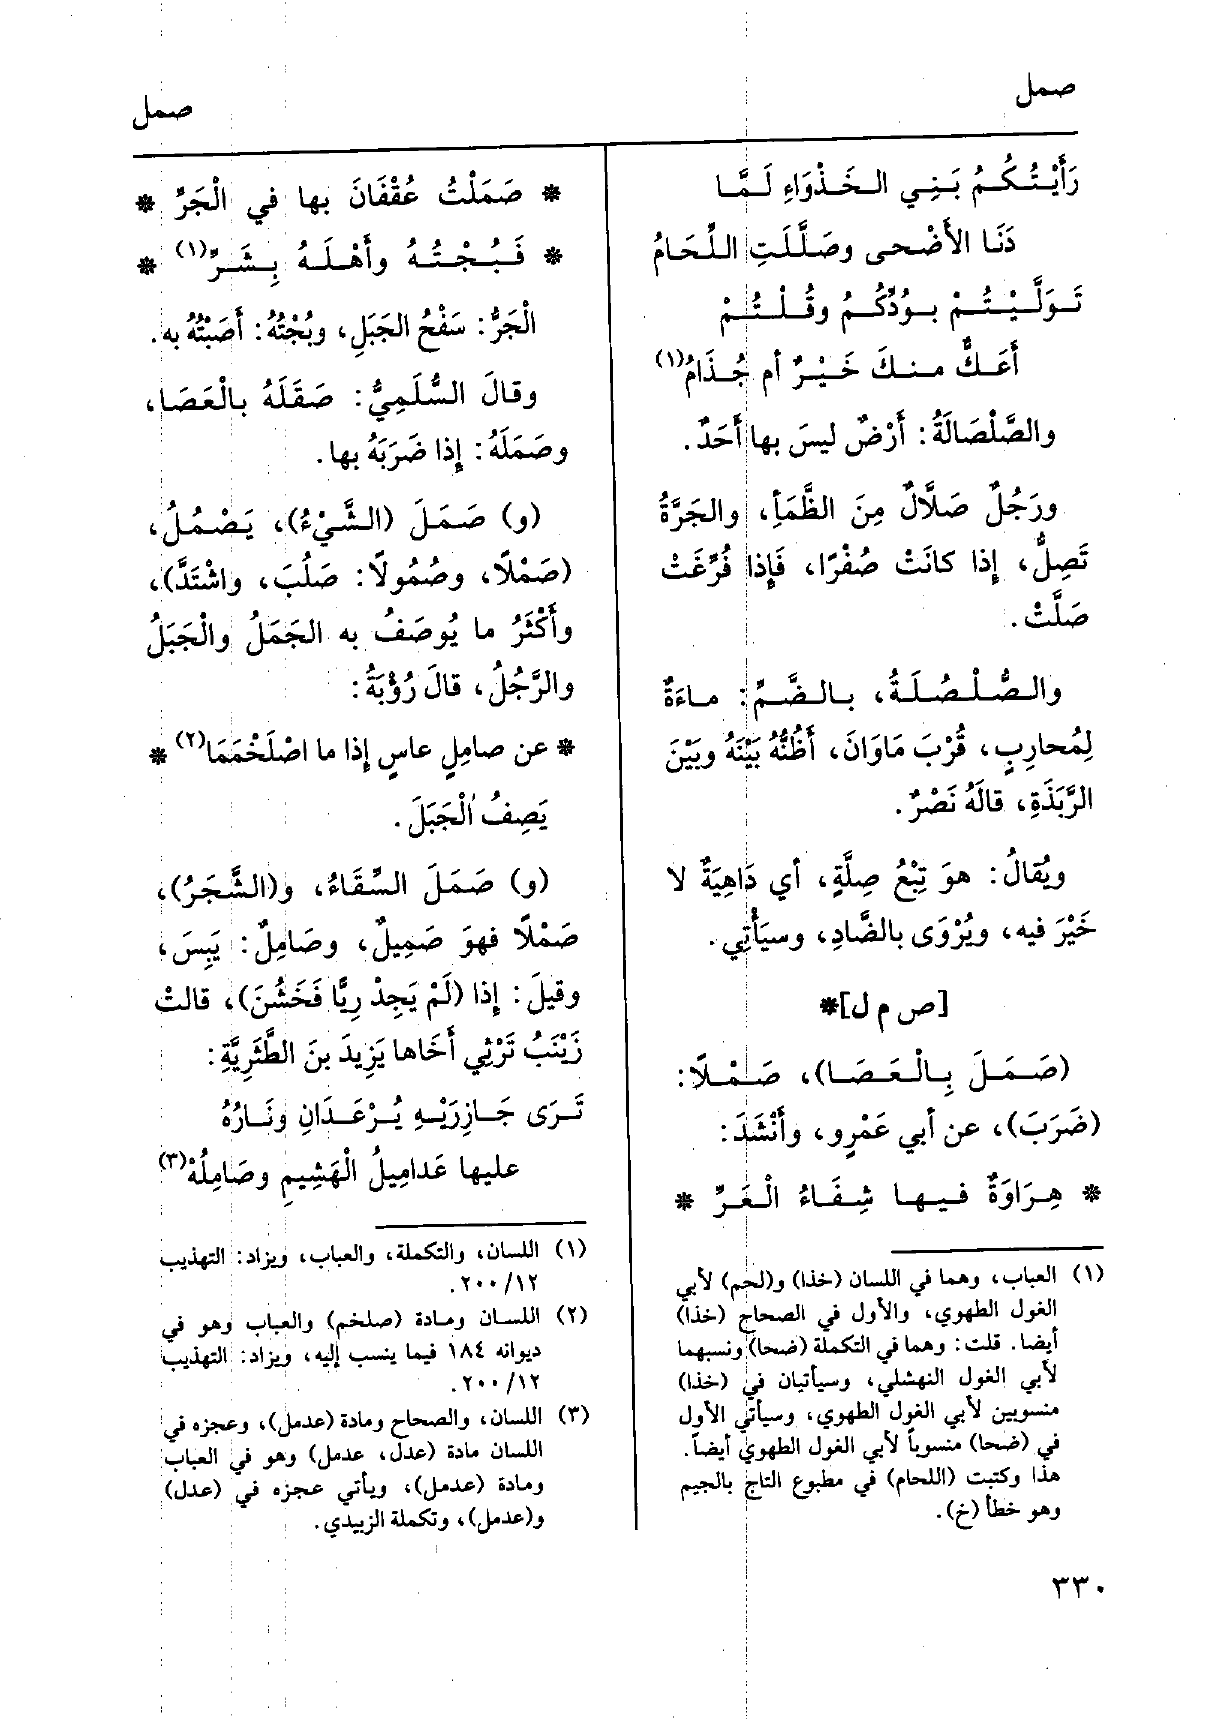 صمل
صمل
رَأَيْتُكُمُ بَنِي الخَذْوَاءِ لَمَّا
دَنَا الأَضْحى وصَلَّلَتِ اللِّحَامُ
تَوَلَّيْتُمْ بوُدِّكُمُ وقُلْتُمْ
أَعَكٌّ منكَ خَيْرٌ أم جُذَامُ(١)
والصَّلْصَالَةُ: أَرْضٌ ليسَ بها أَحَدٌ.
ورَجُلٌ صَلَّالٌ مِنَ الظَّمَأِ، والجَرَّةُ
تَصِلُّ، إذا كانَتْ صُفْرًا، فَإِذا فُرِّغَتْ
صَلَّتْ.
والصُّلْصُلَةُ، بالضَّمِّ: ماءَةٌ
لِمُحارِبٍ، قُرْبَ مَاوَانَ، أَظُنُّهُ بَيْنَهُ وبَيْنَ
الرَّبَذَةِ، قالَهُ نَصْرٌ.
ويُقالُ: هوَ تِبْعُ صِلَّةٍ، أي دَاهِيَةٌ لا
خَيْرَ فيه، ويُرْوَى بالضَّادِ، وسيَأْتِي.
[ص م ل]*
(صَمَلَ بِالْعَصَا)، صَمْلًا:
(ضَرَبَ)، عن أبي عَمْرٍو، وأَنْشَدَ:
* هِرَاوَةٌ فيها شِفَاءُ الْعَرِّ *
(١) العباب، وهما في اللسان (خذا) و(لحم) لأبي
الغول الطهوي، والأول في الصحاح (خذا)
أيضا. قلت: وهما في التكملة (ضحا) ونسبهما
لأبي الغول النهشلي، وسيأتيان في (خذا)
منسوبين لأبي الغول الطهوي، وسيأتي الأول
في (ضحا) منسوباً لأبي الغول الطهوي أيضاً.
هذا وكتبت (اللحام) في مطبوع التاج بالجيم
وهو خطأ (خ).
* صَمَلْتُ عُقْفَانَ بها في الْجَرِّ *
* فَبُجْتُهُ وأَهْلَهُ بِشَرِّ(١) *
الْجَرُّ: سَفْحُ الجَبَلِ، وبُجْتُهُ: أَصَبْتُهُ به.
وقالَ السُّلَمِيُّ: صَقَلَهُ بالْعَصَا،
وصَمَلَهُ: إذا ضَرَبَهُ بها.
(و) صَمَلَ (الشَّيْءُ)، يَصْمُلُ،
(صَمْلًا، وصُمُولًا: صَلُبَ، واشْتَدَّ)،
وأَكْثَرُ ما يُوصَفُ به الجَمَلُ والْجَبَلُ
والرَّجُلُ، قالَ رُؤْبَةُ:
* عن صامِلٍ عاسٍ إذا ما اصْلَخْمَمَا(٢) *
يَصِفُ الْجَبَلَ.
(و) صَمَلَ السِّقَاءُ، و(الشَّجَرُ)،
صَمْلًا فهوَ صَمِيلٌ، وصَامِلٌ: يَبِسَ،
وقيلَ: إذا (لَمْ يَجِدْ رِيًّا فَخَشُنَ)، قالتْ
زَيْنَبُ تَرْثِي أَخَاها يَزِيدَ بنَ الطَّثَرِيَّةِ:
تَرَى جَازِرَيْهِ يُرْعَدَانِ ونَارُهُ
عليها عَدامِيلُ الْهَشِيمِ وصَامِلُهْ(٣)
(١) اللسان، والتكملة، والعباب، ويزاد: التهذيب
١٢/ ٢٠٠.
(٢) اللسان ومادة (صلخم) والعباب وهو في
ديوانه ١٨٤ فيما ينسب إليه، ويزاد: التهذيب
١٢/ ٢٠٠.
(٣) اللسان، والصحاح ومادة (عدمل)، وعجزه في
اللسان مادة (عدل، عدمل) وهو في العباب
ومادة (عدمل)، ويأتي عجزه في (عدل)
و(عدمل)، وتكملة الزبيدي.
٣٣٠